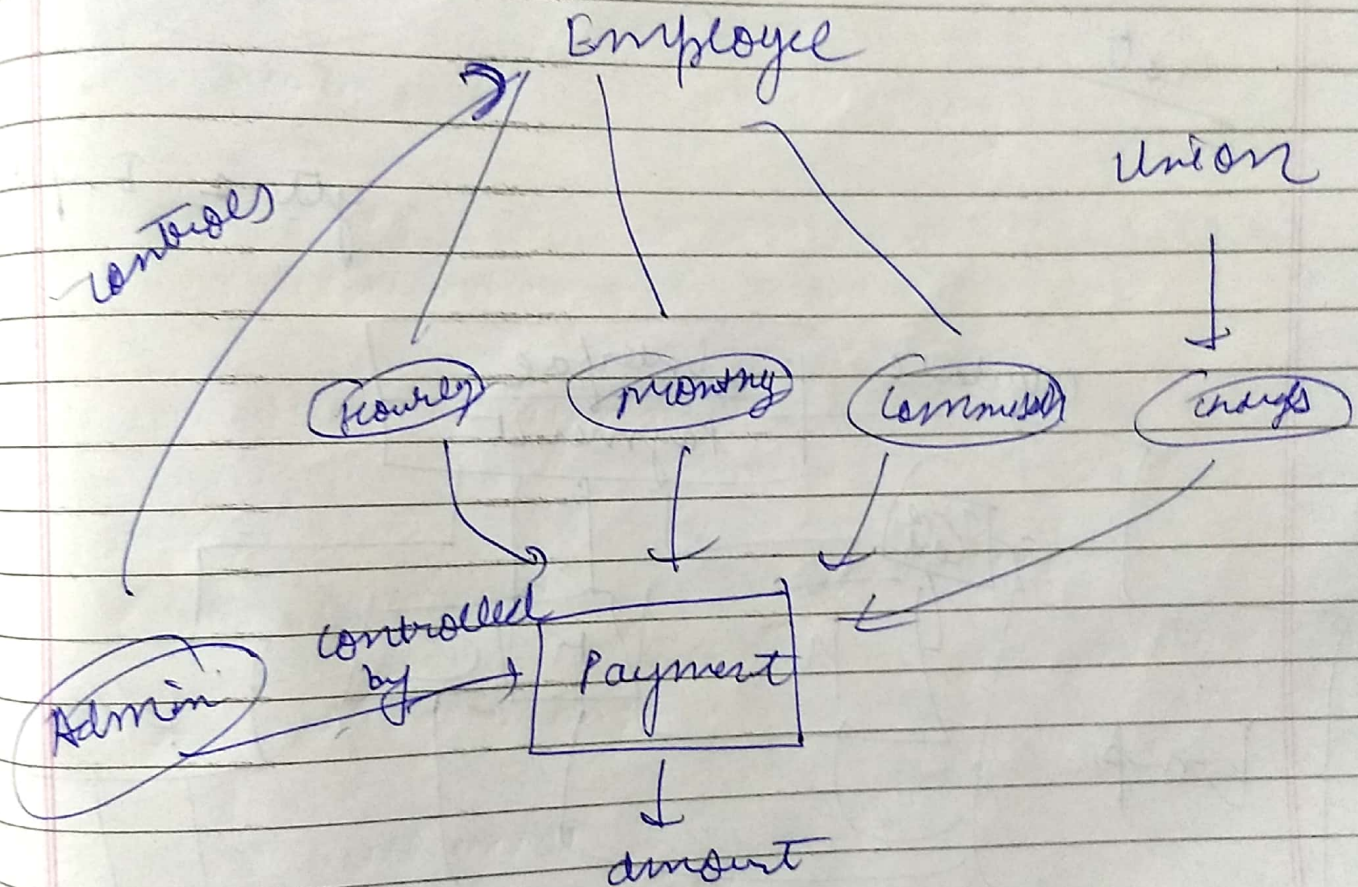 Employee
Union
controls
Hourly
Monthly
Commission
Charges
controlled
by
Payment
Admin
amount